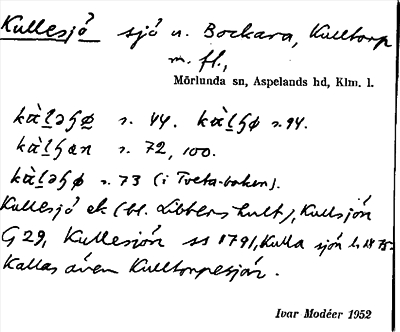 Kullesjö sjö n. Bockara, Kulltorp
m. fl.,
Mörlunda sn, Aspelands hd, Klm. l.
s. 44. s. 94.
s. 72, 100.
s. 73 (i Tveta-boken).
Kullesjö ek (bl. Libbershult), Kullsjön
G 29, Kullesjön ss 1791, Kulla sjön
Kallas även Kulltorpesjön.
Ivar Modéer 1952